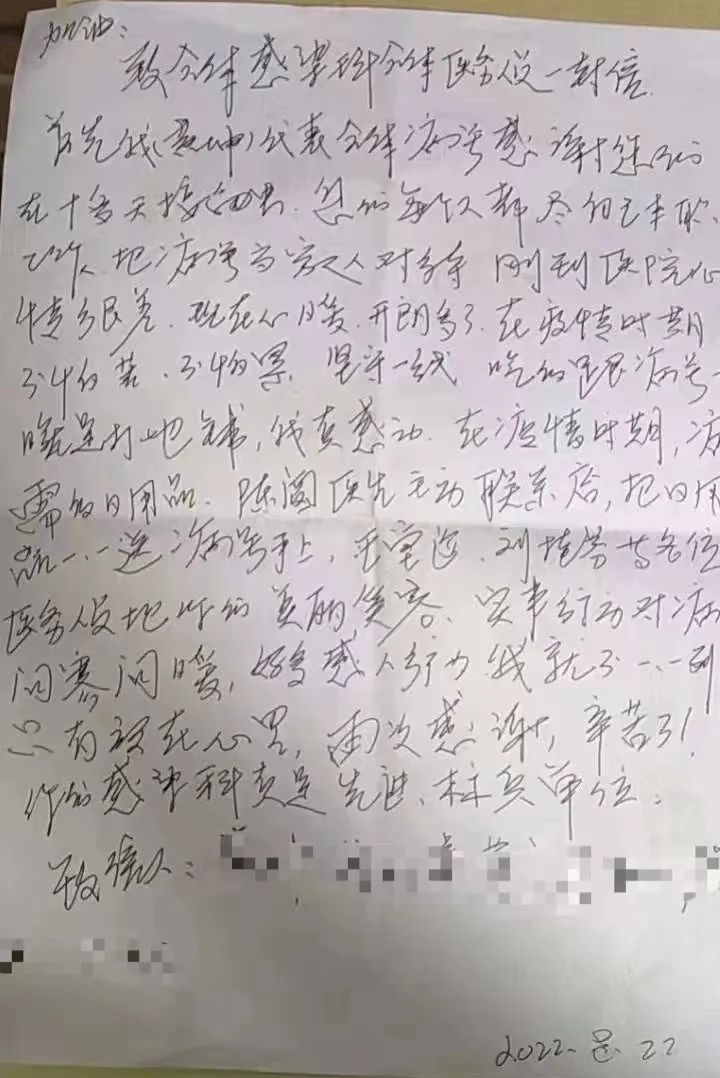 加油:
致全体感染科全体医务人员一封信.
首先我()代表全体病号感谢您们
在十多天接治中. 您们每个人都尽自己本职.
工作. 把病号当家人对待 刚到医院心
情很差. 现在心暖. 开朗多了. 在疫情时期
不怕苦. 不怕累 坚守一线 吃的是跟病号一
睡是打地铺, 我真感动. 在疫情时期, 病
需的日用品. 陈阅医生主动联系后, 把日用
品一.一送病号手上, 刘 等各位
医务人员 们美丽笑容. 实事行动对病
问寒问暖, 好多感人行为 我就不一.一列
只有放在心里, 再次感谢, 辛苦了!
你们感染科真是先进. 标兵单位.
致信人:
2022. 22